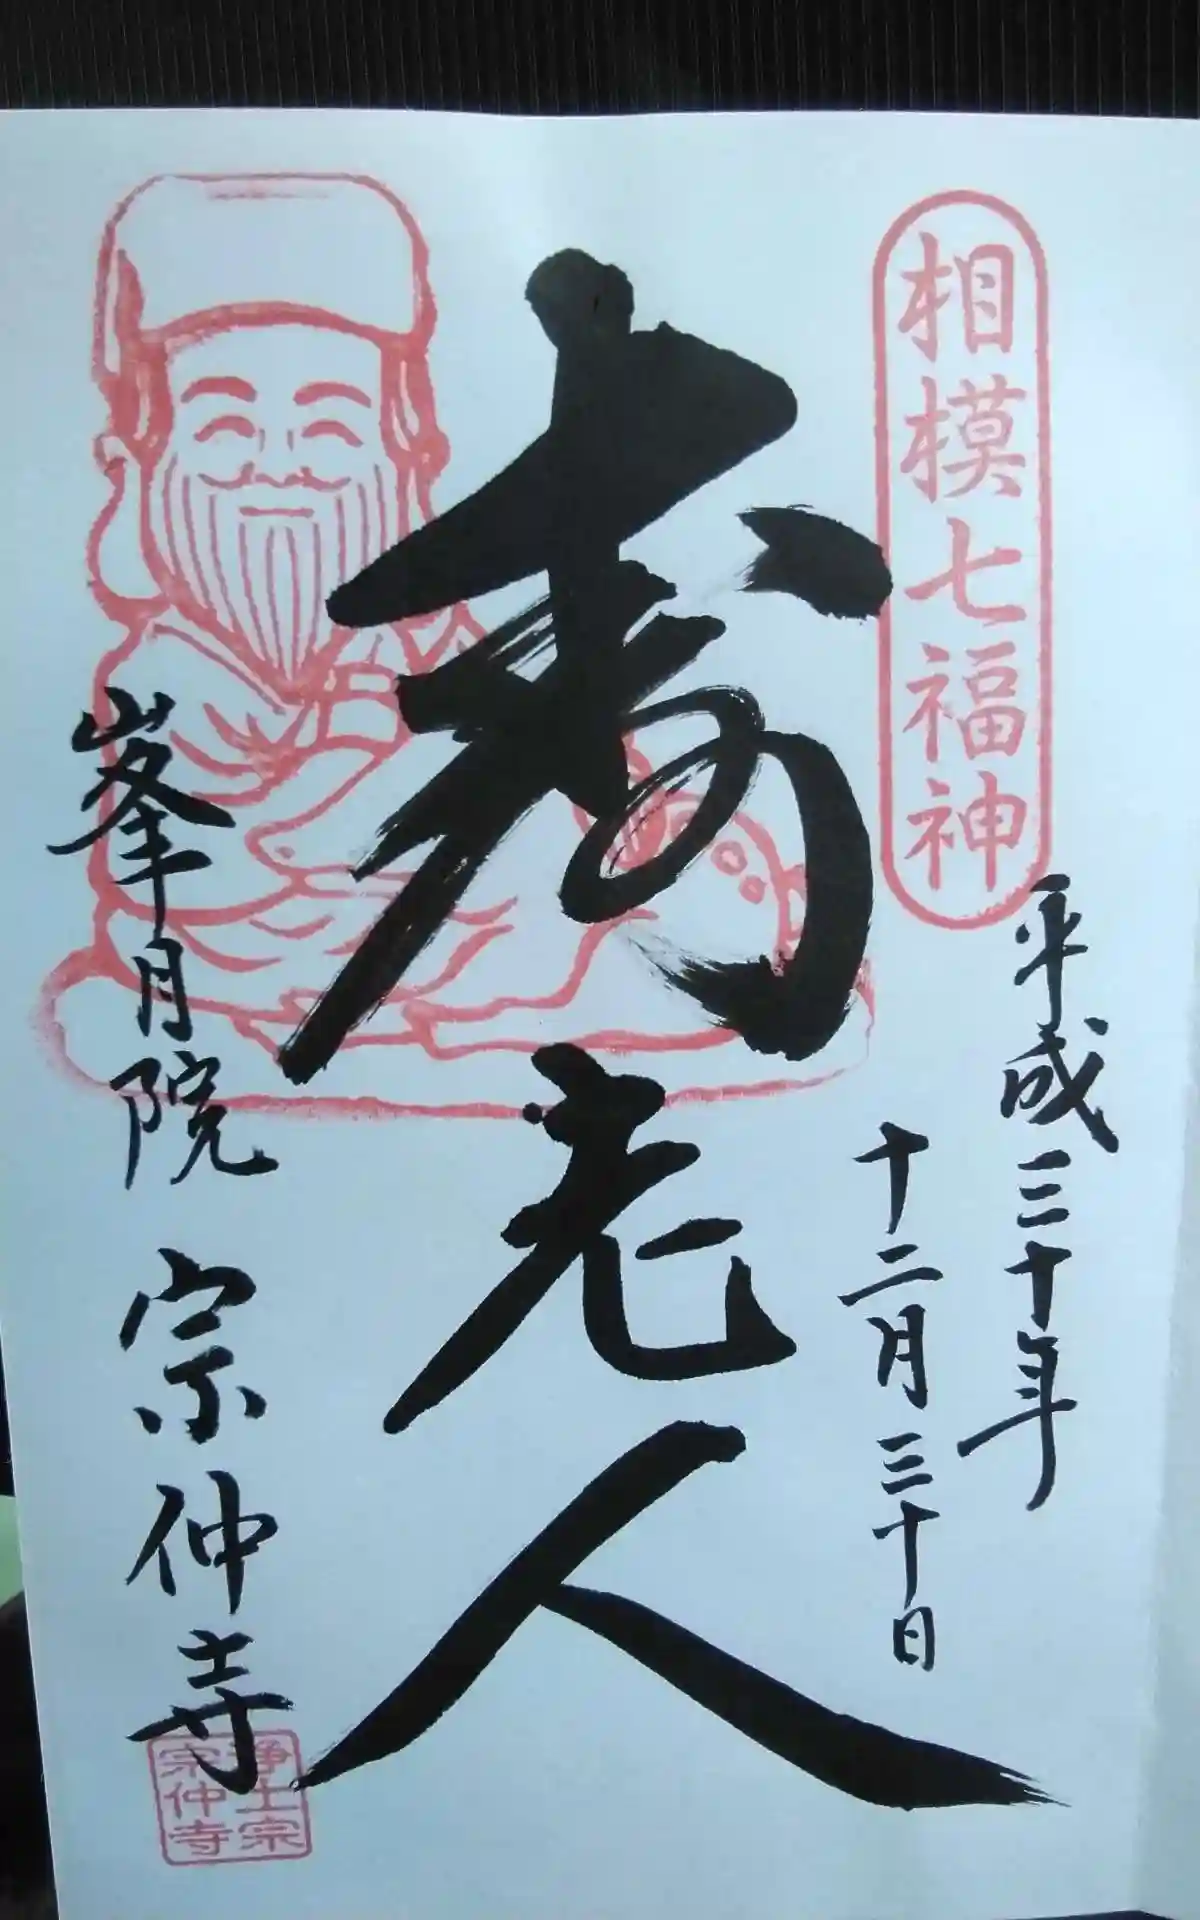 相模七福神
平成三十年
十二月三十日
寿老人
峯月院 宗仲寺
浄土宗
宗仲寺